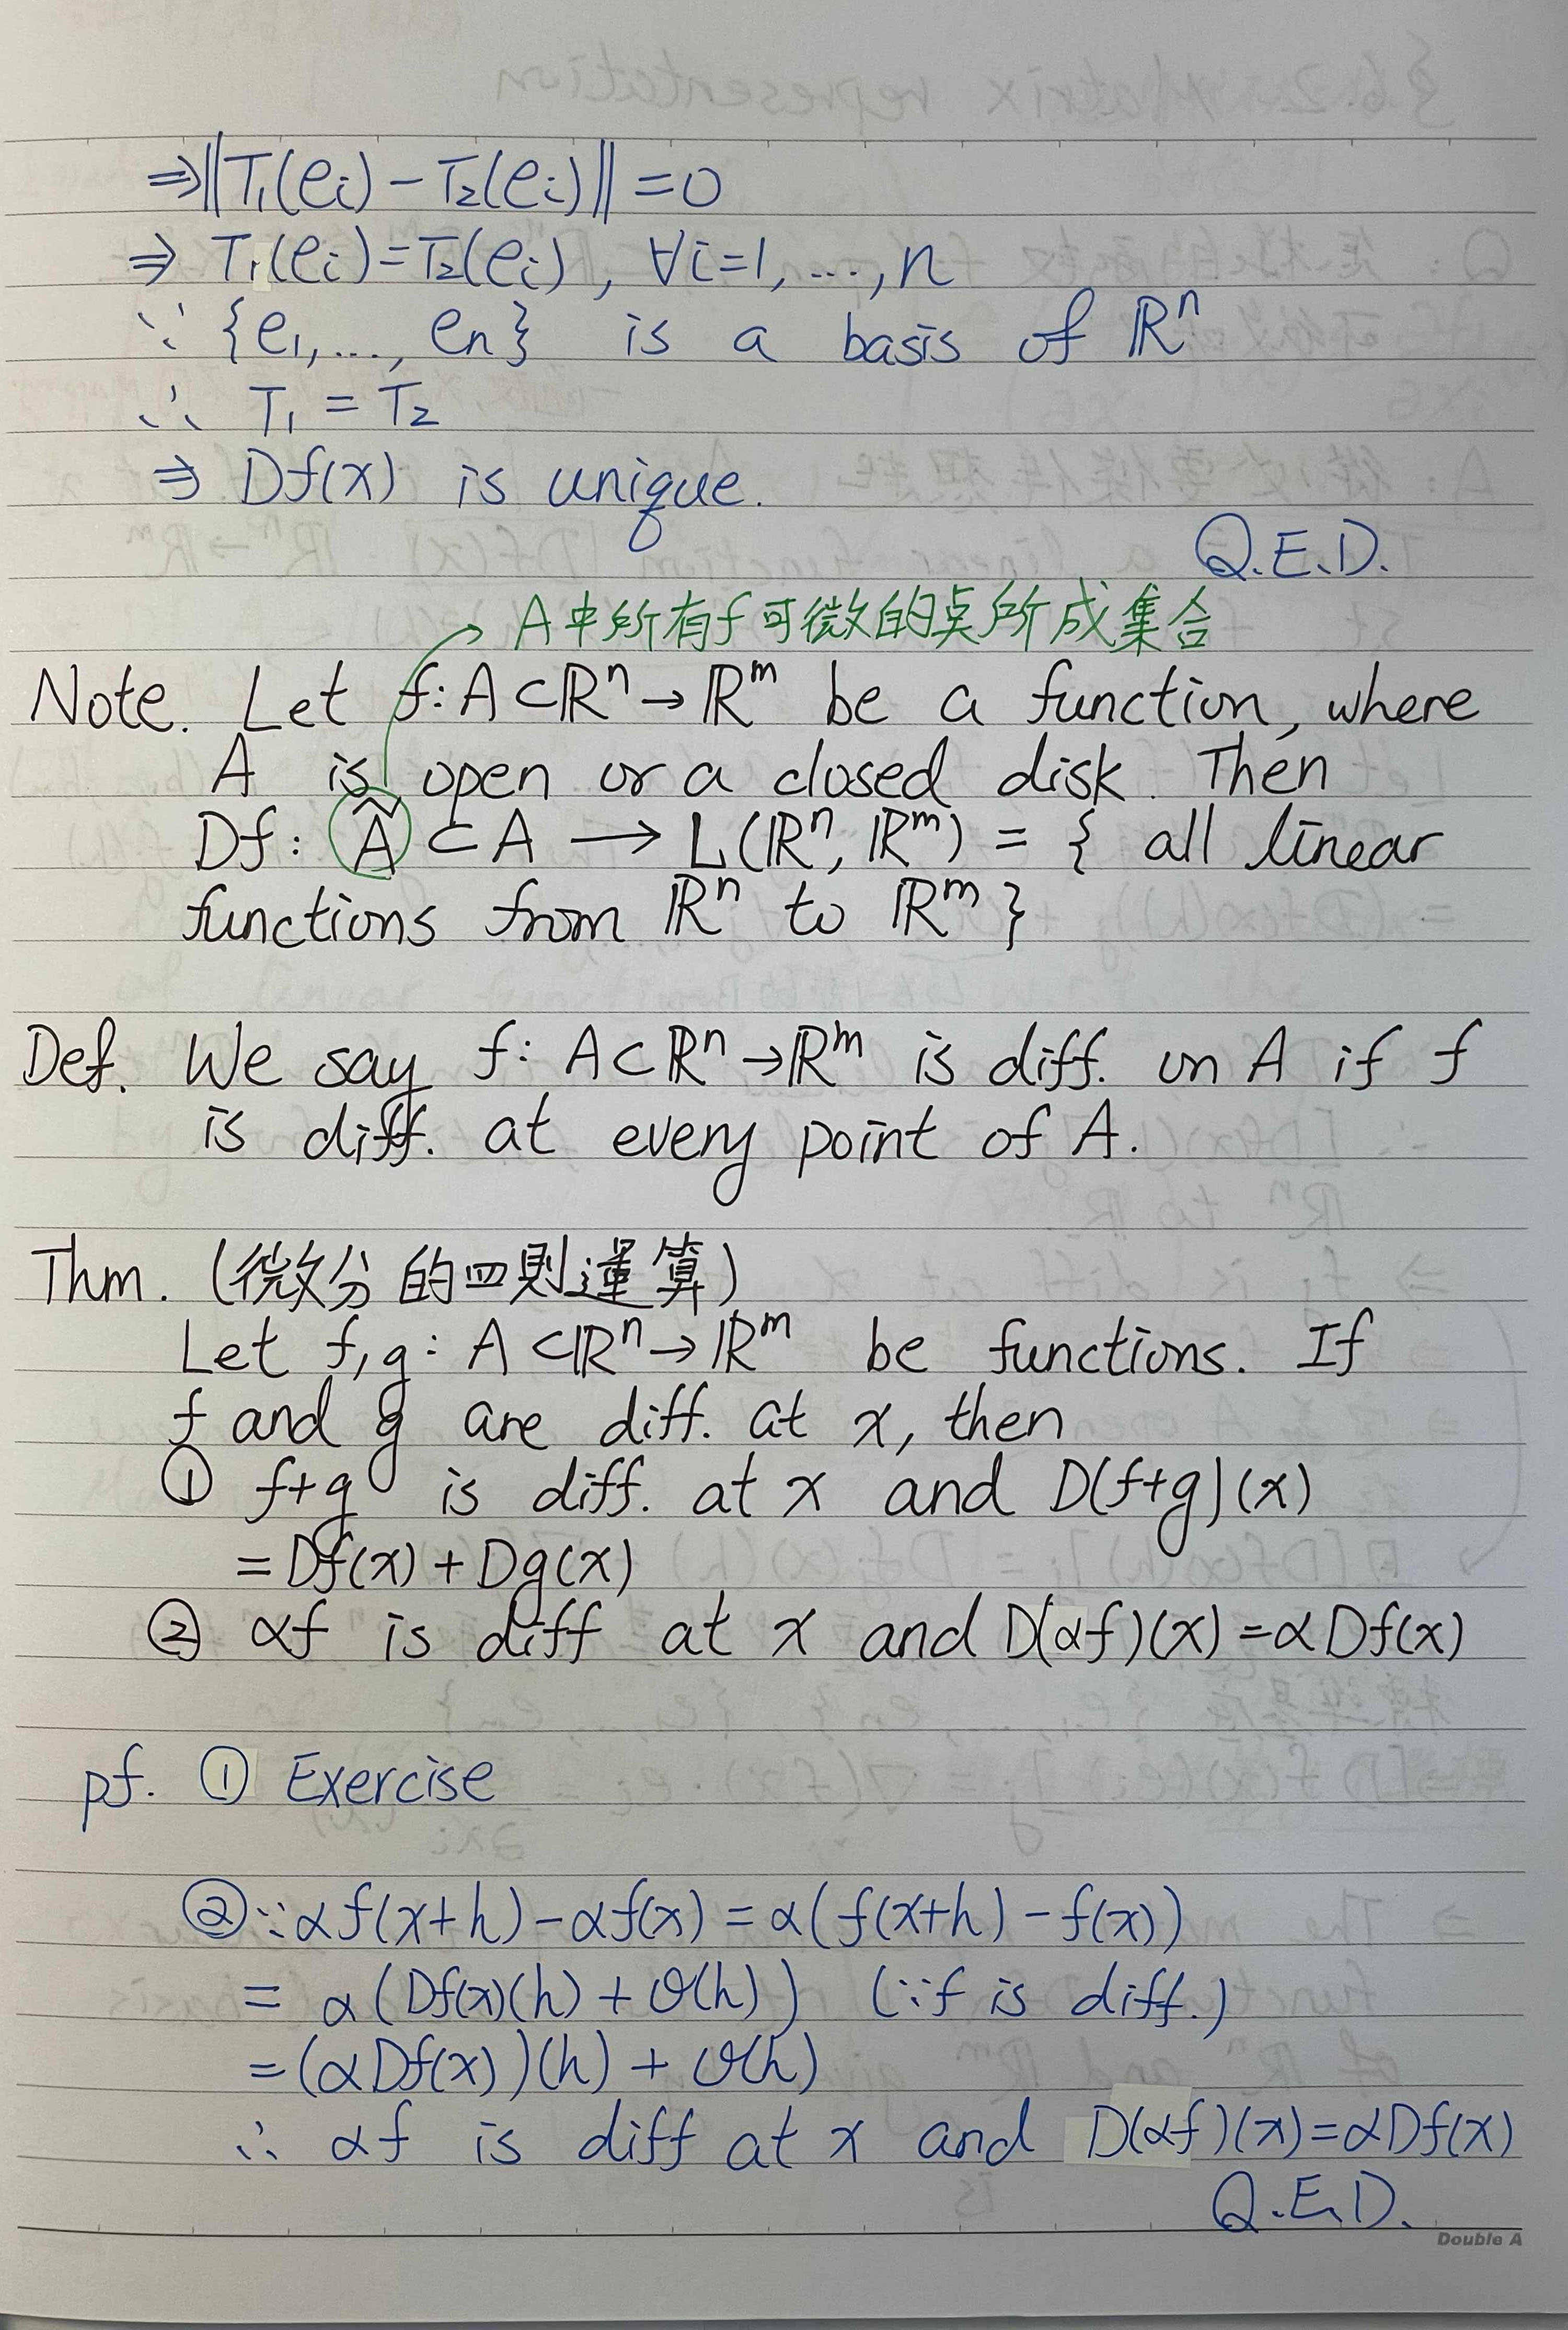 ⇒‖T₁(eᵢ)-T₂(eᵢ)‖=0
⇒ T₁(eᵢ)=T₂(eᵢ), ∀i=1,...,n
∵ {e₁,..., eₙ} is a basis of ℝⁿ
∴ T₁ = T₂
⇒ Df(x) is unique.
Q.E.D.
→ A中所有f可微的点所成集合
Note. Let f: A⊂ℝⁿ→ℝᵐ be a function, where
A is open or a closed disk. Then
Df: Ã ⊂ A ⟶ L(ℝⁿ, ℝᵐ) = { all linear
functions from ℝⁿ to ℝᵐ}
Def. We say f: A⊂ℝⁿ→ℝᵐ is diff. on A if f
is diff. at every point of A.
Thm. (微分的四則運算)
Let f,g: A⊂ℝⁿ→ℝᵐ be functions. If
f and g are diff. at x, then
① f+g is diff. at x and D(f+g)(x)
=Df(x)+Dg(x)
② αf is diff at x and D(αf)(x)=αDf(x)
pf. ① Exercise
②∵αf(x+h)-αf(x)=α(f(x+h)-f(x))
= α(Df(x)(h)+O(h)) (∵f is diff.)
=(αDf(x))(h)+O(h)
∴ αf is diff at x and D(αf)(x)=αDf(x)
Q.E.D.
Double A